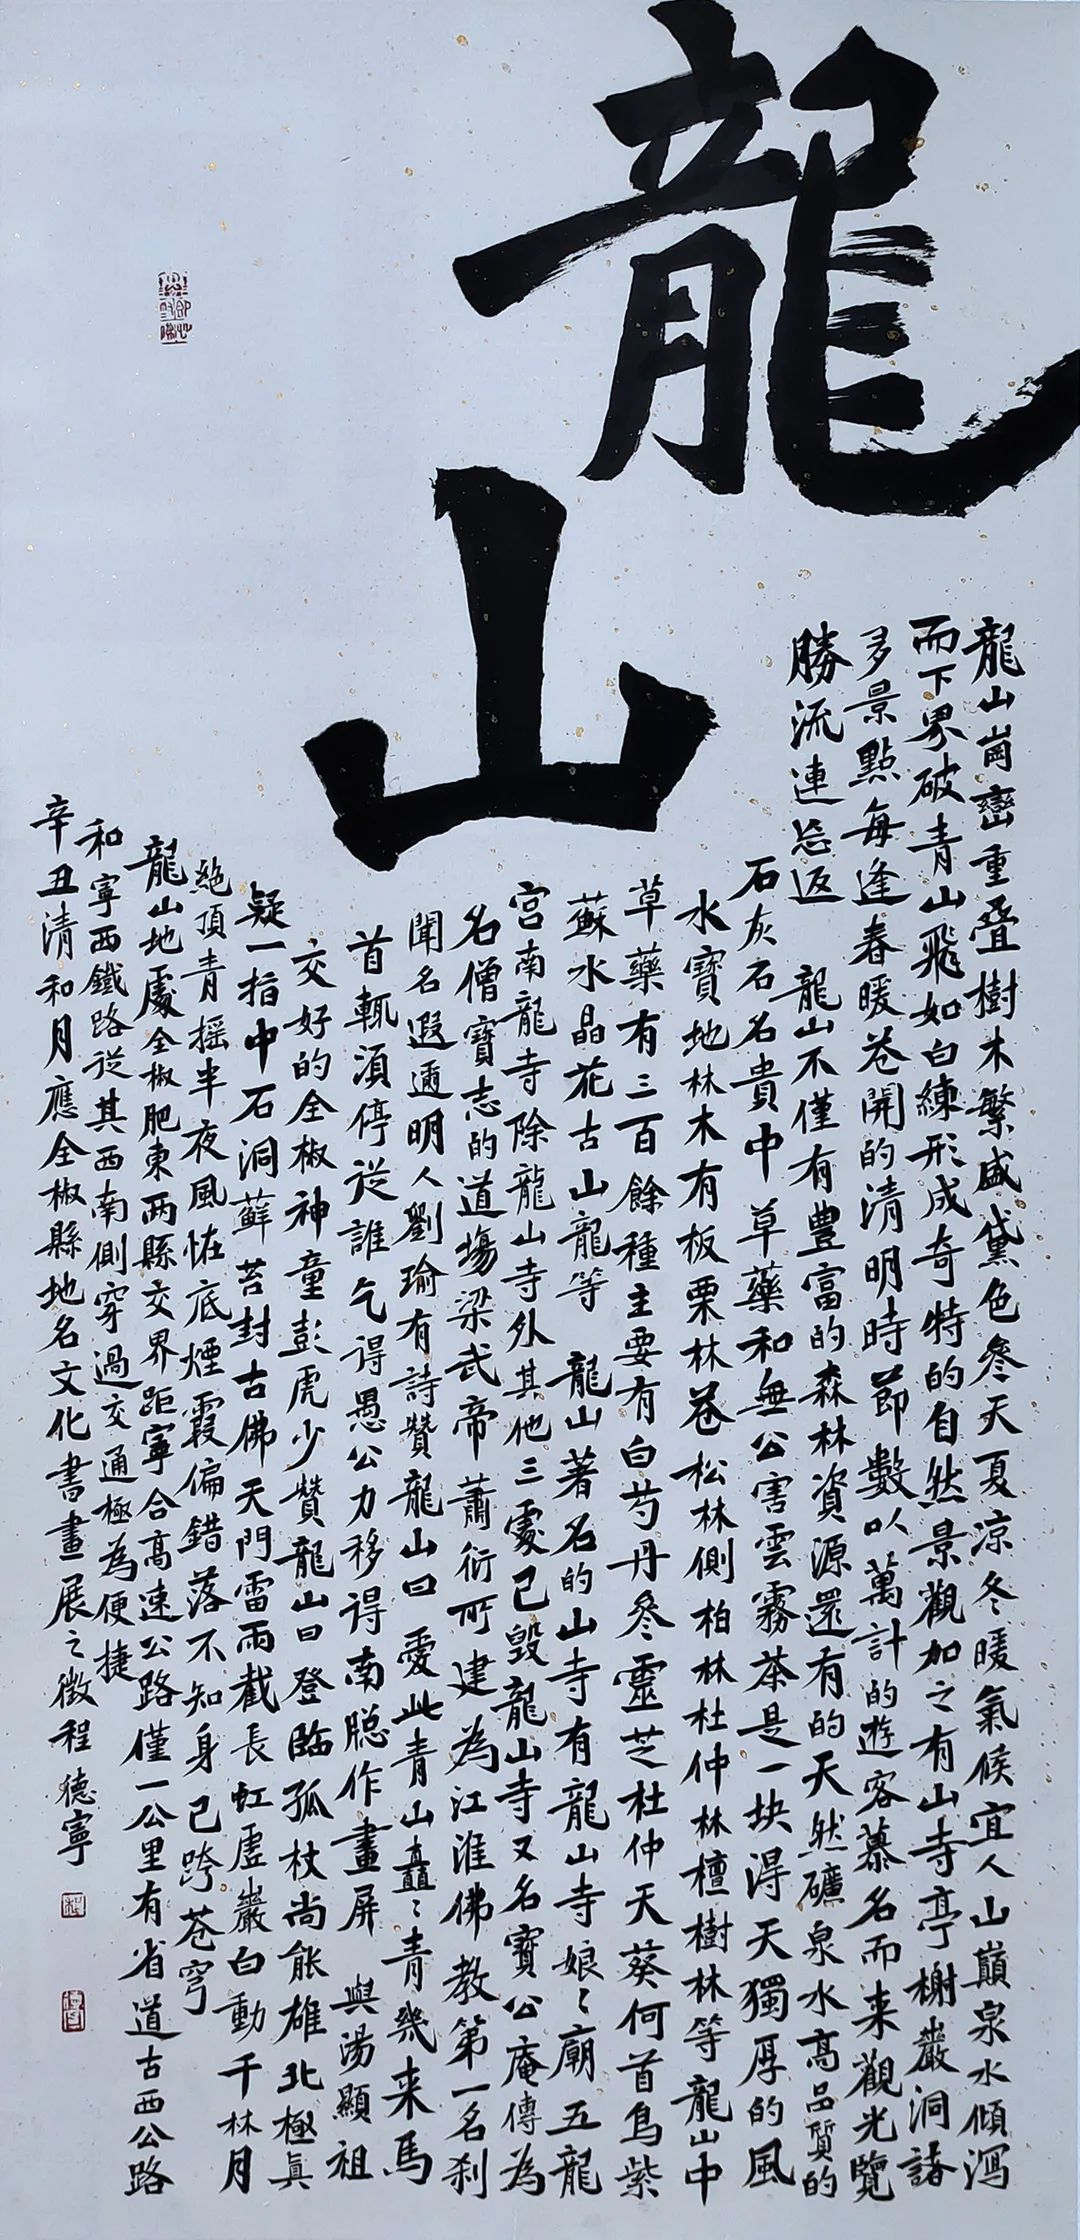 龍山
龍山崗巒重疊樹木繁盛黛色參天夏凉冬暖氣候宜人山巔泉水傾瀉
而下界破青山飛如白練形成奇特的自然景觀加之有山寺亭榭巖洞諸
多景點每逢春暖花開的清明時節數以萬計的遊客慕名而来觀光覽
勝流連忘返 龍山不僅有豊富的森林資源還有的天然礦泉水高品質的
石灰石名貴中草藥和無公害雲霧茶是一块得天獨厚的風
水寶地林木有板栗林花松林側柏林杜仲林檀樹林等龍山中
草藥有三百餘種主要有白芍丹參靈芝杜仲天葵何首烏紫
蘇水晶花古山龍等 龍山著名的山寺有龍山寺娘〻廟五龍
宫南龍寺除龍山寺外其他三處已毀龍山寺又名寶公庵傳為
名僧寶志的道場梁武帝蕭衍所建為江淮佛教第一名刹
聞名遐邇明人劉瑜有詩贊龍山曰 愛此青山矗〻青幾来馬
首輒湏停從誰乞得愚公力移得南聪作畫屏 與湯顯祖
交好的全椒神童彭虎少贊龍山曰登臨孤杖尚能雄北極真
疑一指中石洞蘚苔封古佛天門雷雨截長虹虛巖白動千林月
絶頂青摇半夜風怪底煙霞偏錯落不知身已跨蒼穹
龍山地處全椒肥東两縣交界距寧合高速公路僅一公里有省道古西公路
和寧西鐵路從其西南側穿過交通極為便捷
辛丑清和月應全椒縣地名文化書畫展之徵程德寧